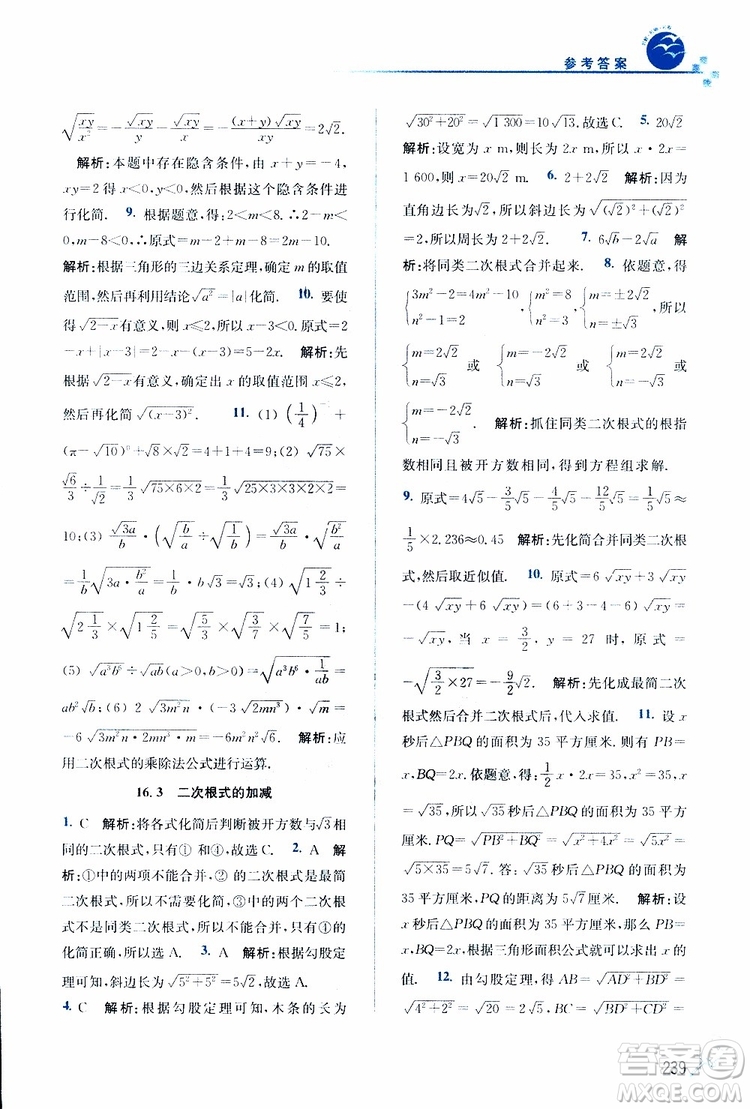 参考答案
√(xy/x²) = −√(xy)/y − √(xy)/x = −(x+y)√(xy)/(xy) = 2√2.
解析:本题中存在隐含条件,由 x+y=−4,
xy=2 得 x<0,y<0,然后根据这个隐含条件进
行化简. 9. 根据题意,得:2<m<8.∴2−m<
0,m−8<0,∴原式=m−2−(8−m)=2m−10.
解析:根据三角形的三边关系定理,确定 m 的取值
范围,然后再利用结论√a²=|a|化简. 10. 要使
√(2−x)有意义,则 x≤2,所以 x−3<0.原式=2−
x+|x−3|=2−x+(3−x)=5−2x. 解析:先
根据√(2−x)有意义,确定出 x 的取值范围 x≤2,
然后再化简√(x−3)². 11. (1) (1/4)⁻ +
(π−√10)⁰+√8×√2=4+1+4=9;(2) √75÷
√6/3÷1/√2=1/3√(75×6×2)=1/3√(25×3×3×2×2)=
10;(3) √(3a)/b·(√(b/a)÷√(1/b))=√(3a)/b·√(b²/a)
=1/b√(3a·b²/a)=√3;(4) √(1 2/3)÷
√(2 1/3)×√(1 2/5)=√(5/3×3/7×7/5)=1;
(5) √(a³b⁶)÷√(ab)(a>0,b>0)=√(a³b⁶·1/(ab))=
ab²√b;(6) 2√(3m²n)·(−3√(2mn³))·√m=
−6√(3m²n·2mn³·m)=−6m²n²√6. 解析:应
用二次根式的乘除法公式进行运算.
16.3 二次根式的加减
1. C 解析:将各式化简后判断被开方数与√3相
同的二次根式,只有①和④,故选C. 2. A 解
析:①中的两项不能合并,②的二次根式已是最简
二次根式,所以不需要化简,③中的两个二次根
式不是同类二次根式,所以不能合并,只有④中
的化简正确,所以选A. 3. A 解析:根据勾股定
理可知,斜边长为√(5²+5²)=5√2,故选A.
4. C 解析:根据勾股定理可知,木条的长为
√(30²+20²)=√1 300=10√13.故选C. 5. 20√2
解析:设宽为 x m,则长为 2x m,所以 x·2x=
1 600,x=20√2 m. 6. 2+2√2 解析:因为
直角边长为√2,所以斜边长为√((√2)²+(√2)²)=2,
所以周长为2+2√2. 7. 6√b−2√a 解
析:将同类二次根式合并起来. 8. 依题意,得
{3m²−2=4m²−10 n²−1=4−n²,所以{m=±2√2 n=±√3,所以
{m=2√2 n=√3 或 {m=−2√2 n=√3 或 {m=−2√2 n=−√3 或
{m=2√2 n=−√3. 解析:抓住同类二次根式的根指
数和被开方数相同,得到方程组求解.
9. 原式=4√5−3/5√5−16/5√5=4√5−12/5√5−√5≈
1/5×2.236≈0.45 解析:先化简合并同类二次根
式,然后取近似值. 10. 原式=6√xy+3√xy
−(4√xy+6√xy)=(6+3−4−6)√xy=
−√xy,当 x=3/2,y=27 时,原式=
−√(3/2×27)=−9/2√2. 解析:先化成最简二次
根式然后合并二次根式后,代入求值. 11. 设 x
秒后△PBQ的面积为35平方厘米.则有PB=
x,BQ=2x.依题意,得:1/2x·2x=35,x=
√35,所以√35秒后△PBQ的面积为35平方
厘米.PQ=√(PB²+BQ²)=√(x²+4x²)=√(5x²)
=√(5×35)=5√7.答:√35秒后△PBQ的面
积为35平方厘米,PQ的距离为5√7厘米. 解析:
设 x 秒后△PBQ的面积为35平方厘米,那么PB
=x,BQ=2x,根据三角形面积公式可求出 x 的
值. 12. 由勾股定理,得 AB=√(AD²+BD²)=
√(4²+2²)=√20=2√5 m,BC=√(BD²+CD²)=
239
答案圈
MXQE.COM